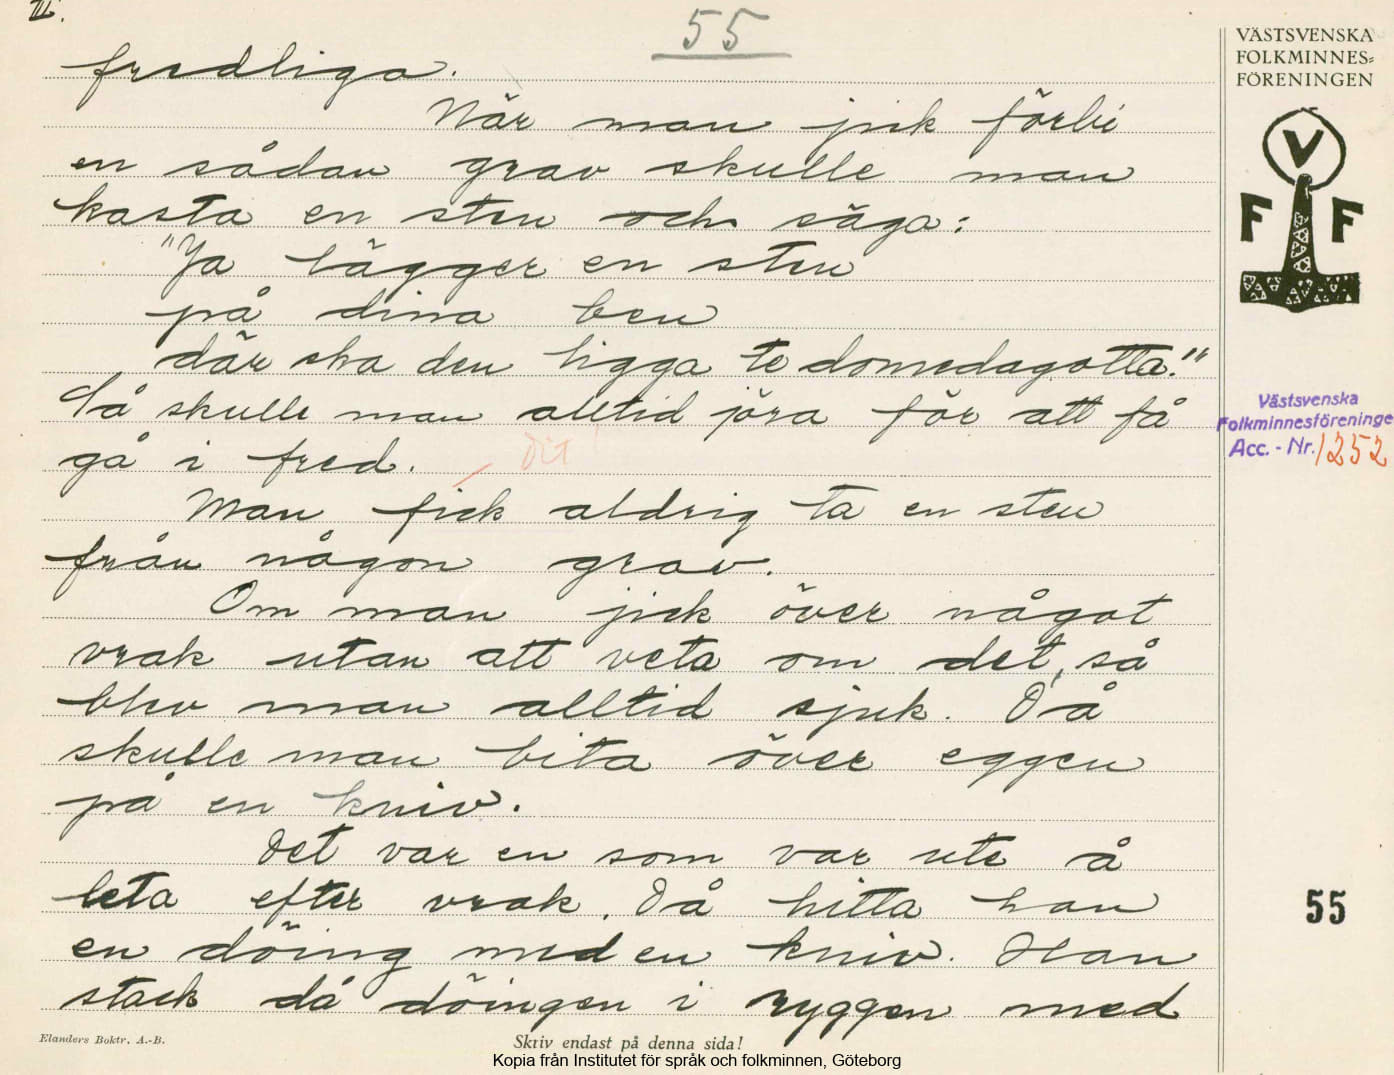 III.
55
fredliga.
När man jick förbi
en sådan grav skulle man
kasta en sten och säga:
"Ja lägger en sten
på dina ben
där ska den ligga te domedagotta!"
Så skulle man alltid jöra för att få
gå i fred.
Man fick aldrig ta en sten
från någon grav.
Om man jick över något
vrak utan att veta om det, så
blev man alltid sjuk. Då
skulle man bita över eggen
på en kniv.
Det var en som var ute å
leta efter vrak. Då hitta han
en döing med en kniv. Han
stack då döingen i ryggen med
Elanders Boktr. A.-B.
Skriv endast på denna sida!
Kopia från Institutet för språk och folkminnen, Göteborg
VÄSTSVENSKA
FOLKMINNES=
FÖRENINGEN
V
F F
Västsvenska
Folkminnesföreninge
Acc. - Nr. 1252
55